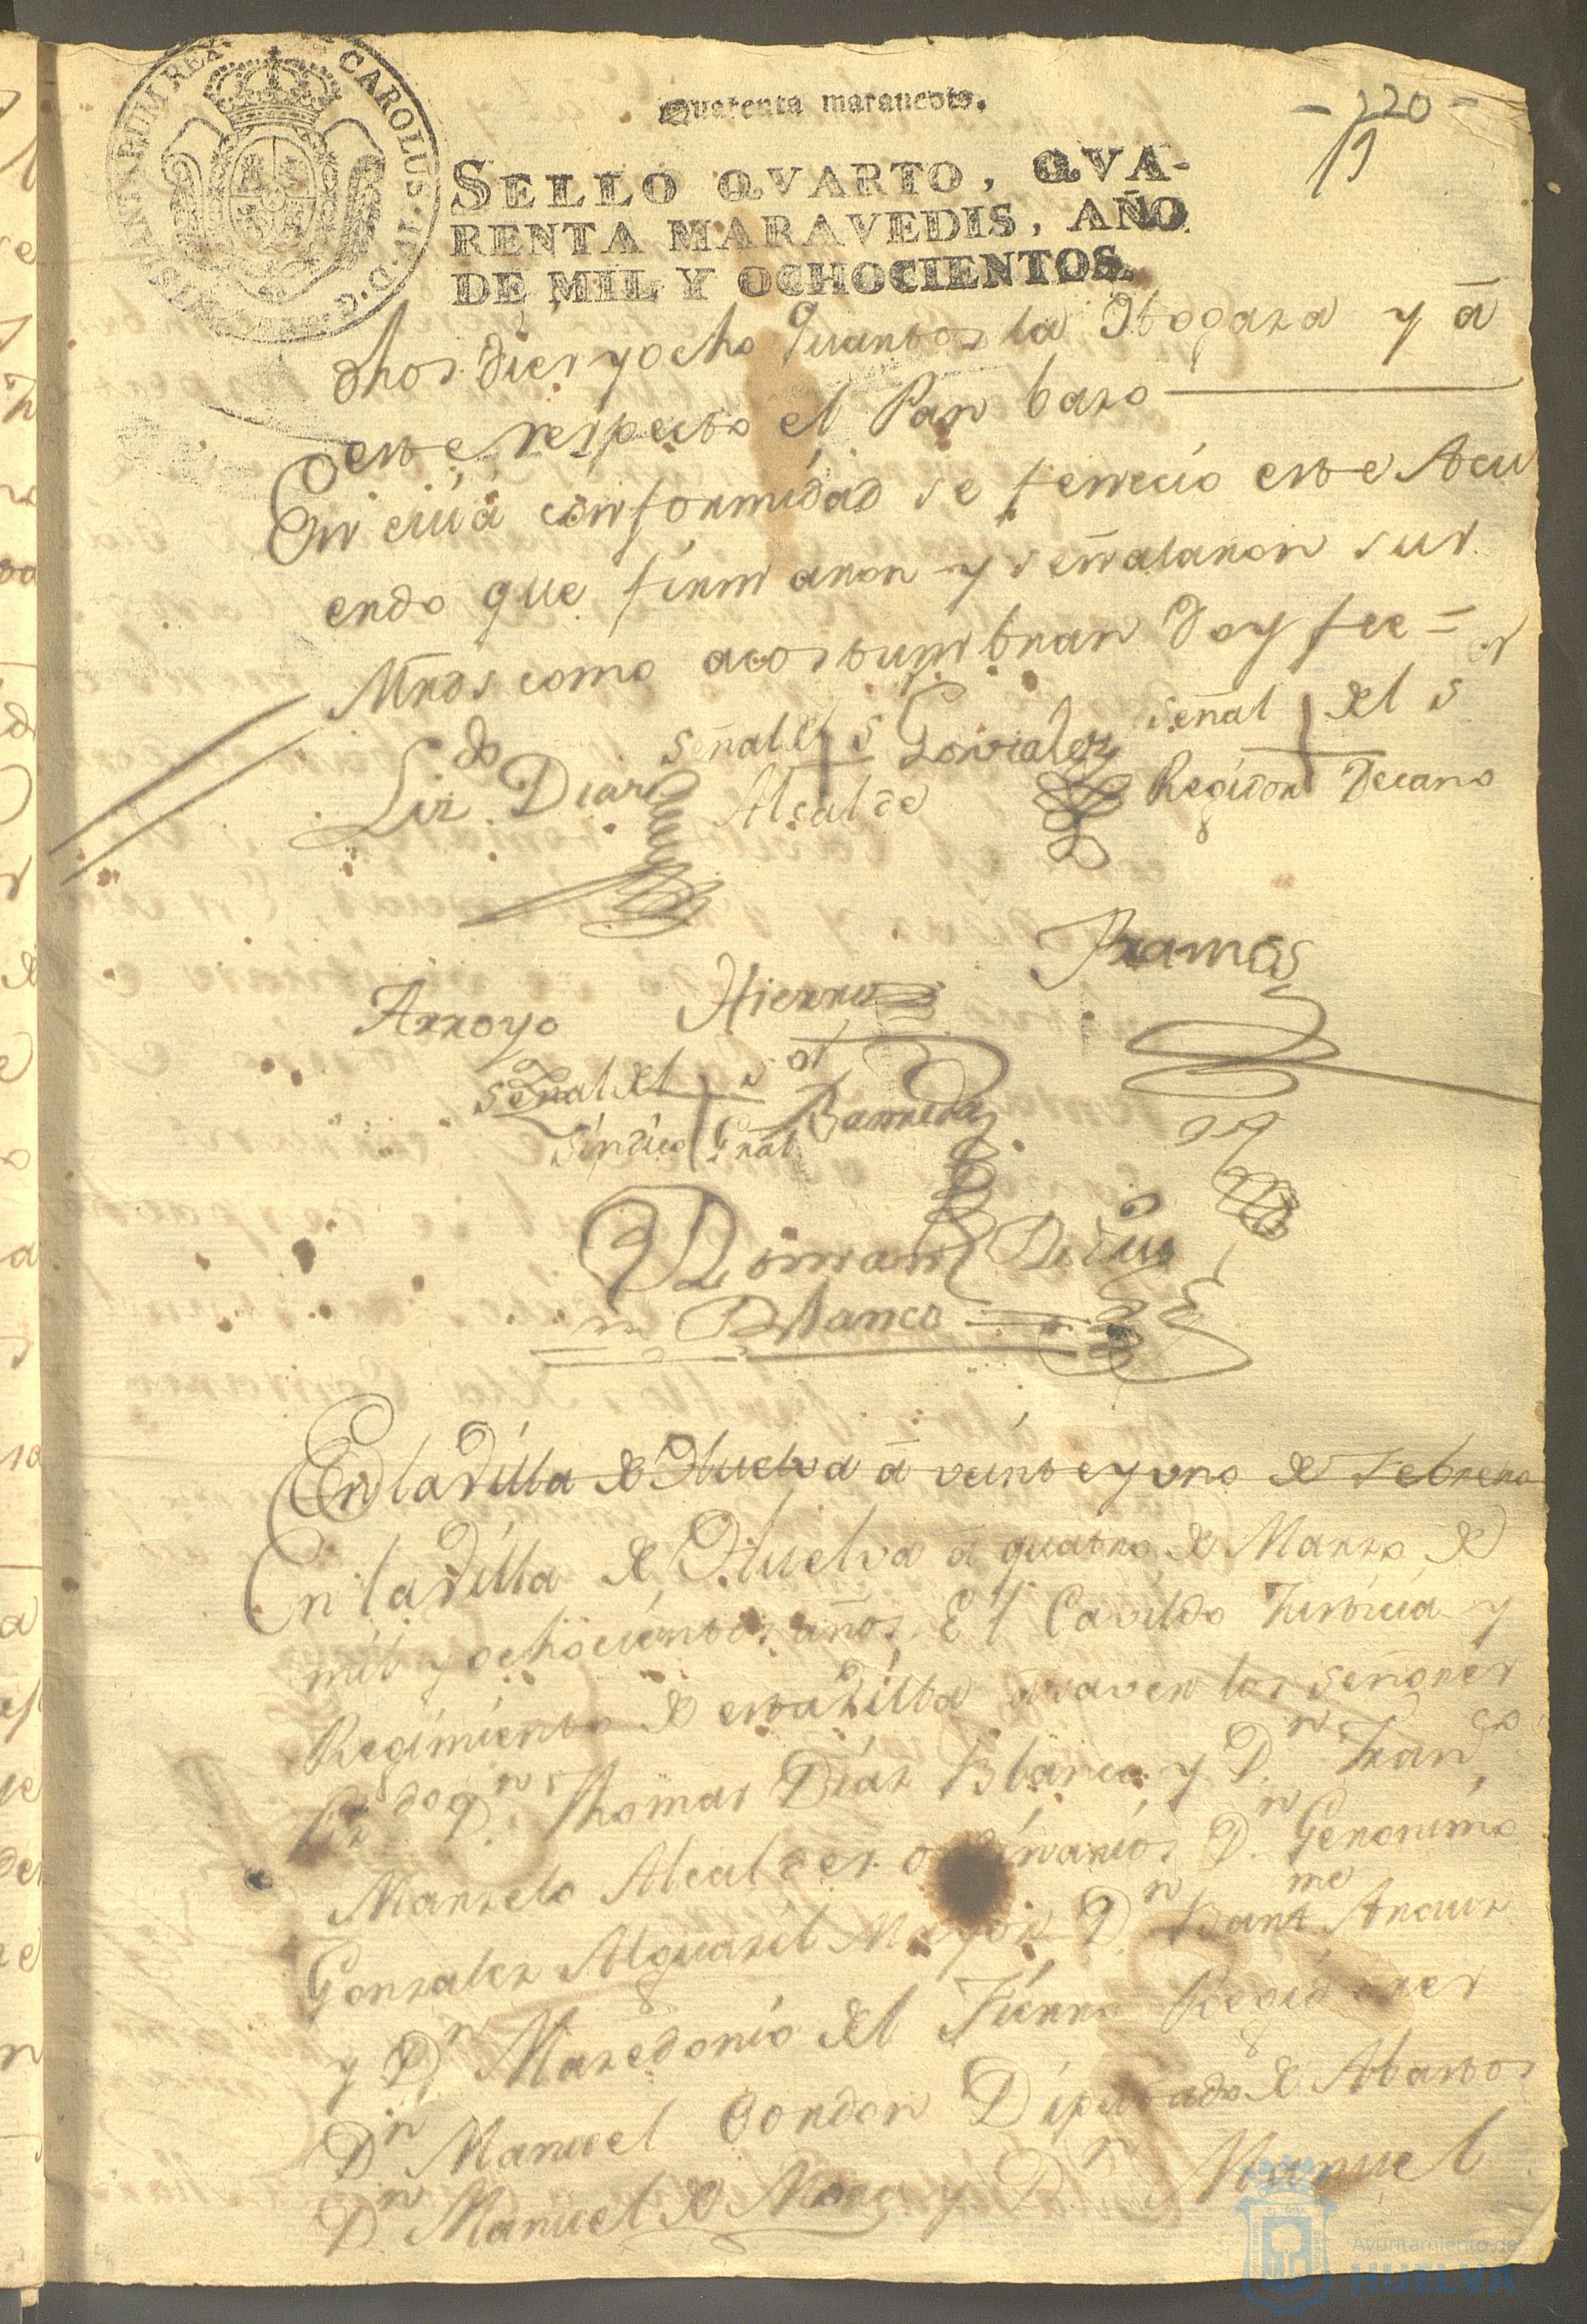 CAROLUS·IV·D·G· HISPANIARUM REX·
Quarenta marauedis.
- 220 -
SELLO QVARTO, QVA-
RENTA MARAVEDIS, AÑO
DE MIL Y OCHOCIENTOS.
dhos diez y ocho quartos la Ogaza y â
este respecto el Pan bazo
En cuiá conformidad se fenecio este Acu
erdo que firmaron y señalaron sus
Mrds como acostumbran Doy fee =
Lizdo Diaz
señal del sor
Gonzalez
Alcalde
señal del sor
Regidor Decano
Arroyo
Hierro
Ramos
señal del sor
Sindico Gral
Barreda
Blanco
En la Villa de Huelva â veinte y uno de Febrero
En la Villa de Huelva â quatro de Marzo de
mil y ochocientos años El Cavildo Justicia y
Regimiento de esta Villa â saver los señores
Lizdo Dn Thomas Diaz Blanco y Dn Franco
Marzelo Alcaldes ordinarios Dn Geronimo
Gonzalez Alguazil Mayor Dn Bartme Arauz
y Dn Mazedonio del Fierro Regidores
Dn Manuel Cordon Diputado de Abastos
Dn Manuel de Mora y Dn Manuel
Ayuntamiento de
HUELVA